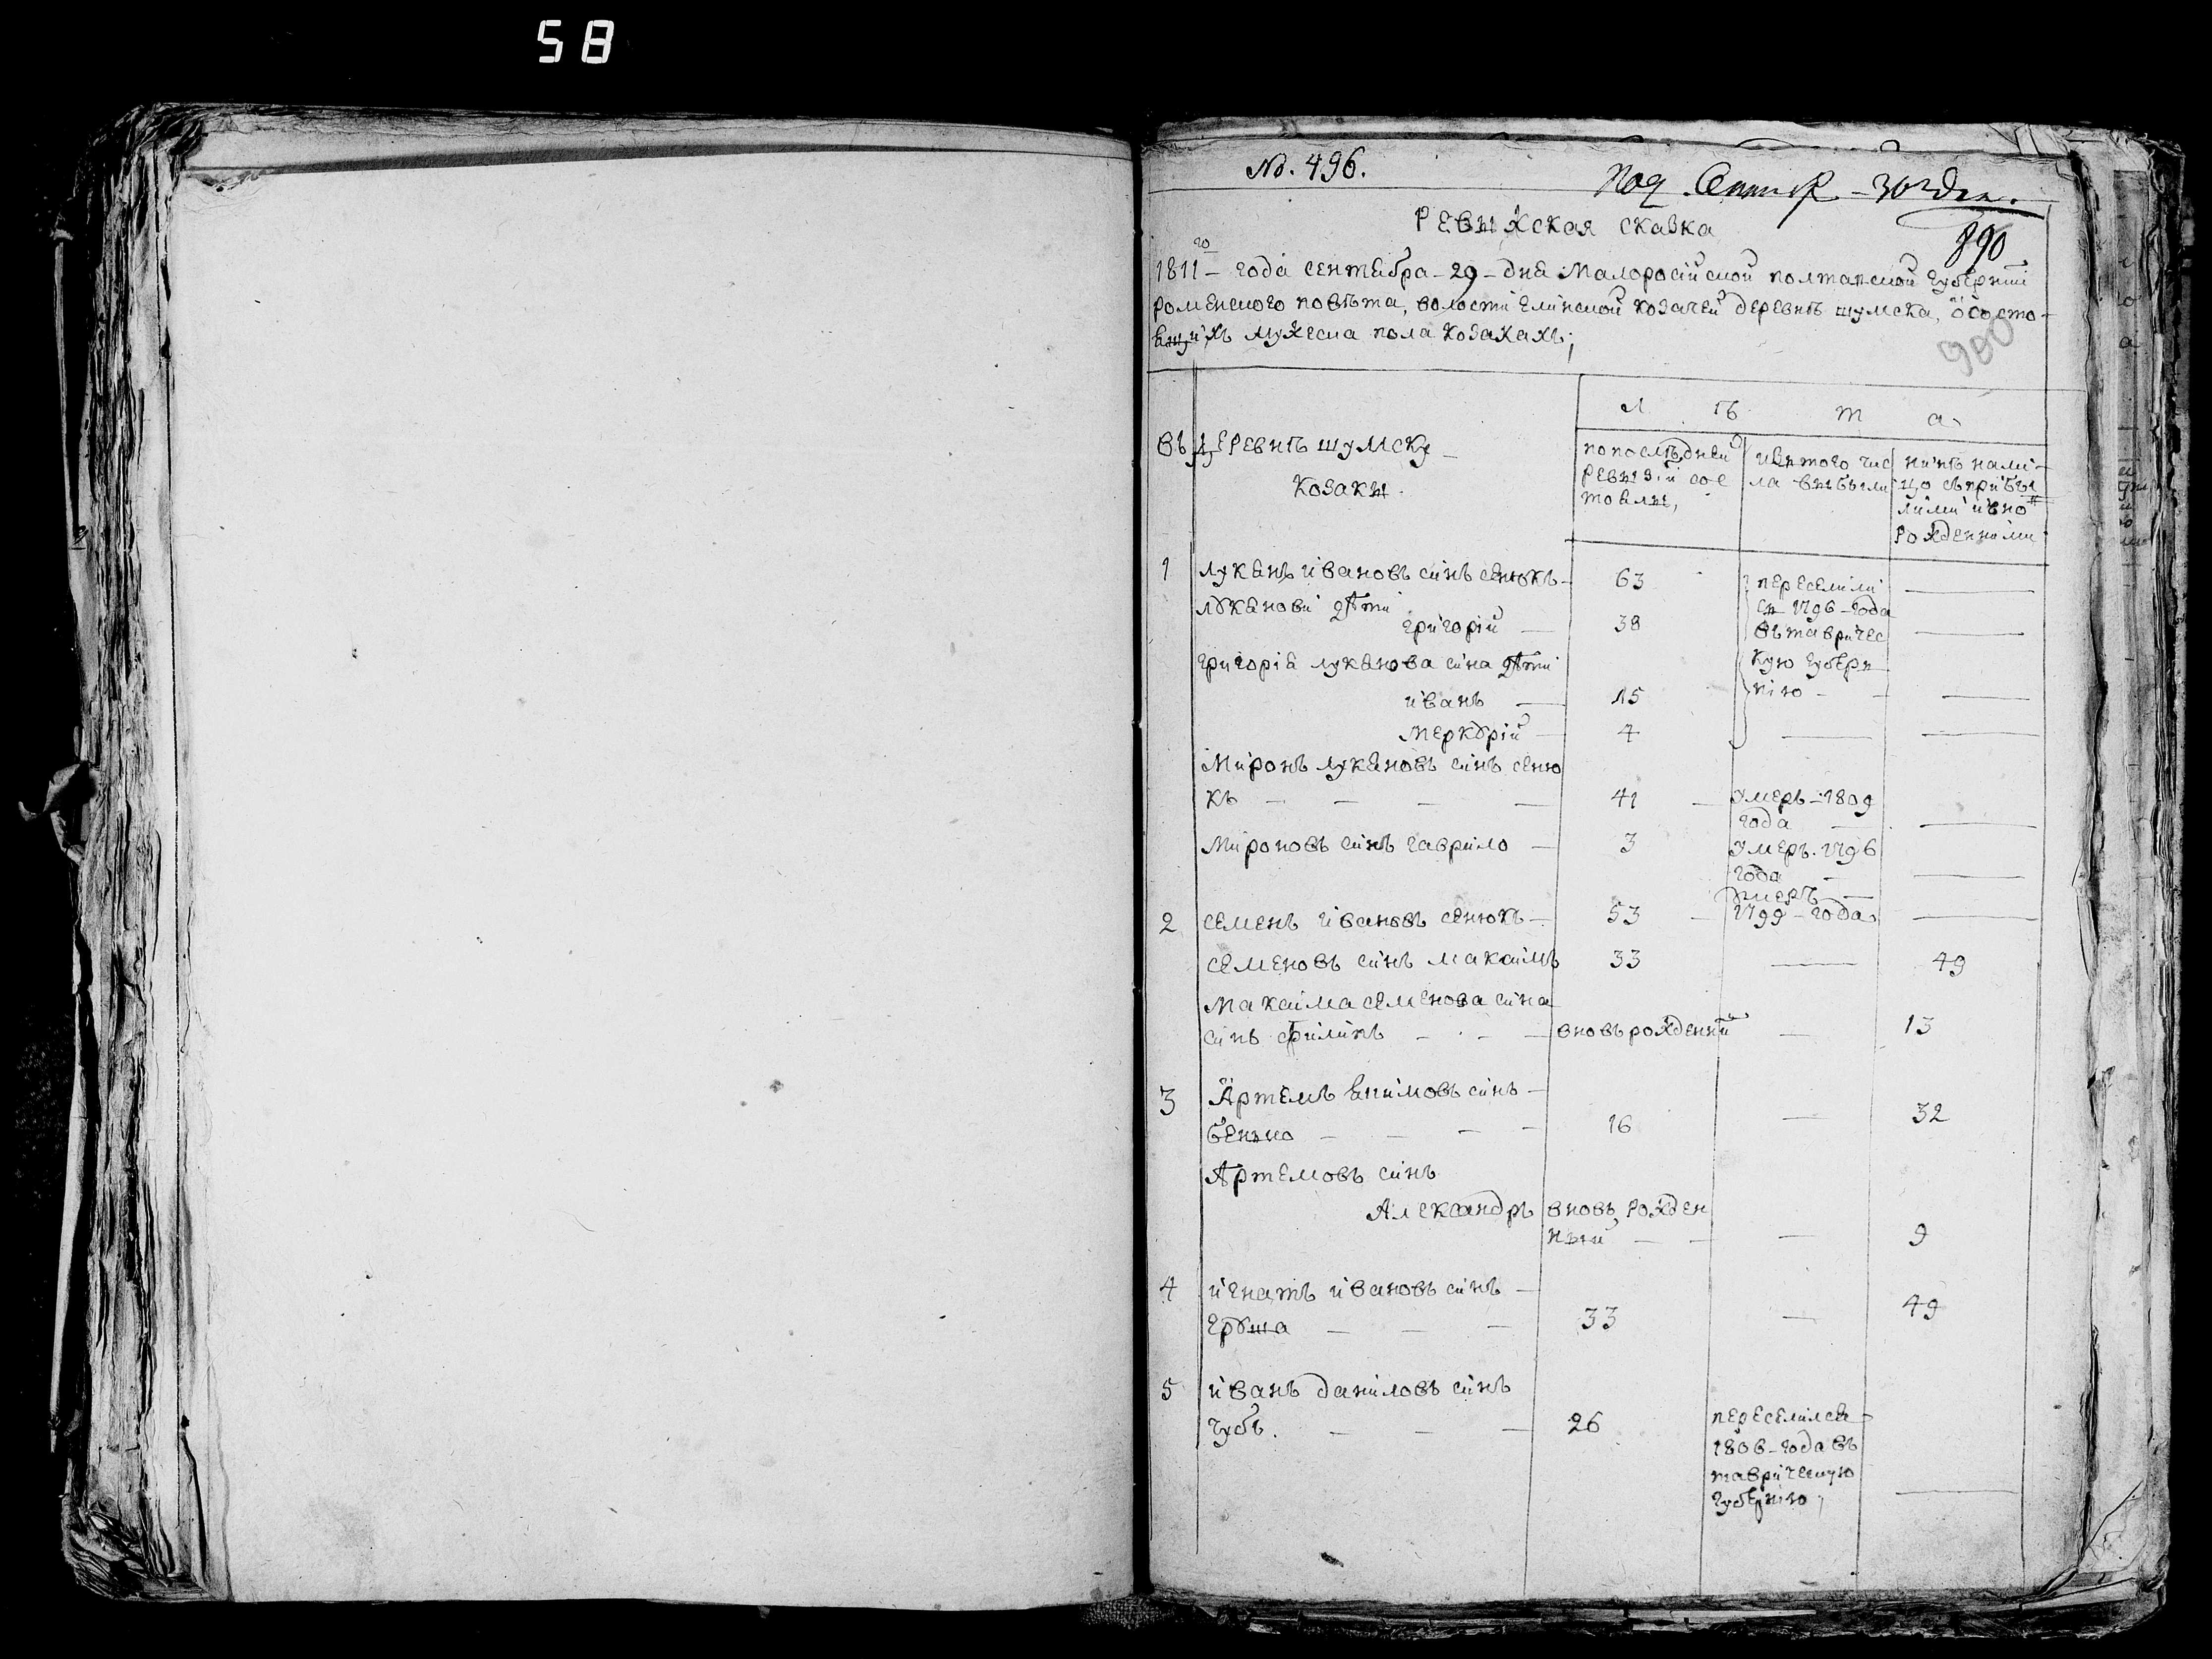 58
No. 496.
890
РЕВЫЖская сказка
1811го – года сентября – 29 – дня Малоросійской полтавской губерніи
роменского повѣта, волости глинской козачей деревнѣ шумска, о состо-
ящихъ мужеска пола козакахъ;
900
Л ѣ т а
Въ деревнѣ шумску
козаки.
по послѣдней
ревизіи сос
тояли,
изъ того чис
ла выбыли
нинѣ нали-
цо съ прибы
лими и вно
рожденними
1 лукянъ ивановъ синъ сенюкъ – 63
пересели
ся 1796 – года
въ тавричес
кую губерн
нію –
лукянови дѣти
григорій – 38
григорія лукянова сина дѣти
иванъ – 15
меркурій – 4
Миронъ лукяновъ синъ сеню
къ – – – – 41 – умеръ – 1809
года
Мироновъ синъ гаврило – 3 умеръ. 1796
года
2 семенъ ивановъ сенюкъ – 53 – умеръ
1799 – года
семеновъ синъ максимъ 33 – 49
Максима семенова сина
синъ филипъ – – – вновь рожденній – 13
3 Артемъ якимовъ синъ –
бенько – – – – 16 – 32
Артемовъ синъ
Александръ вновь рожден
ный – – – 9
4 игнатъ ивановъ синъ –
груша – – – 33 – 49
5 иванъ даниловъ синъ
чубъ. – – – 26
переселился
1806 – года въ
таврическую
губернію;